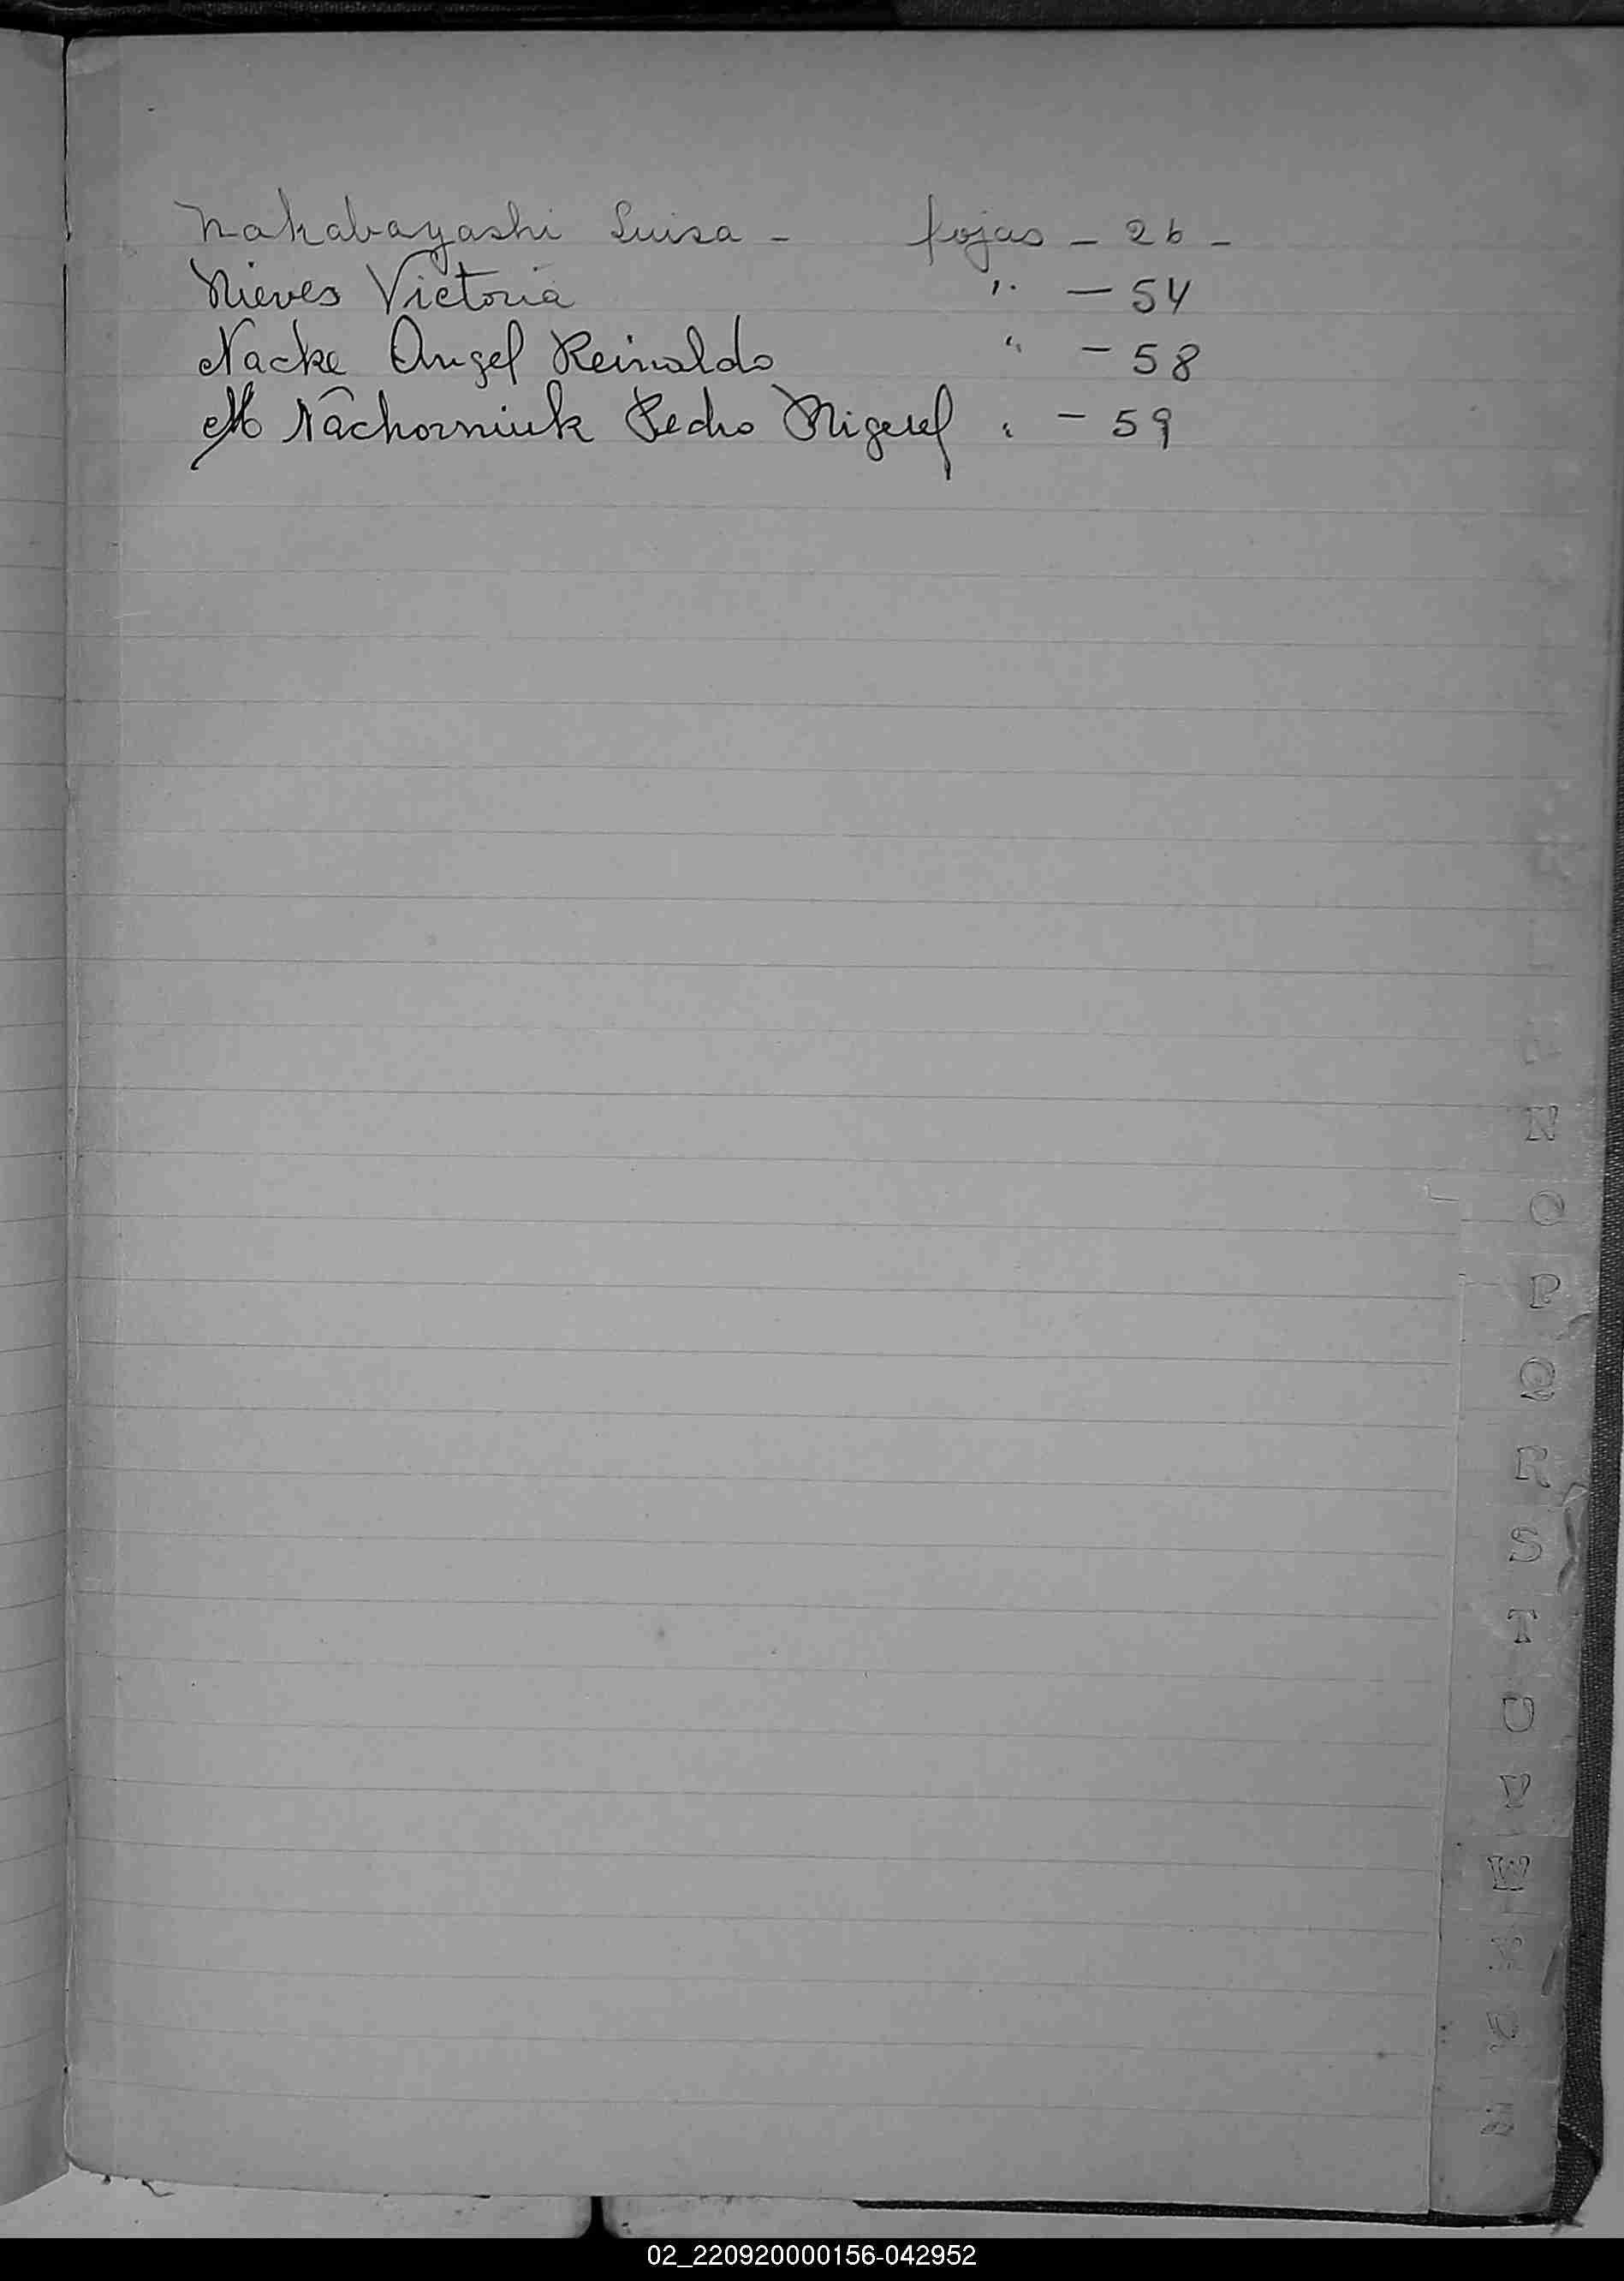 Nakabayashi Luisa - fojas - 26 -
Nieves Victoria " - 54
Nacke Angel Reinaldo " - 58
M Nachorniuk Pedro Miguel " - 59
N
O
P
Q
R
S
T
U
V
W
X
Y
Z
02_220920000156-042952